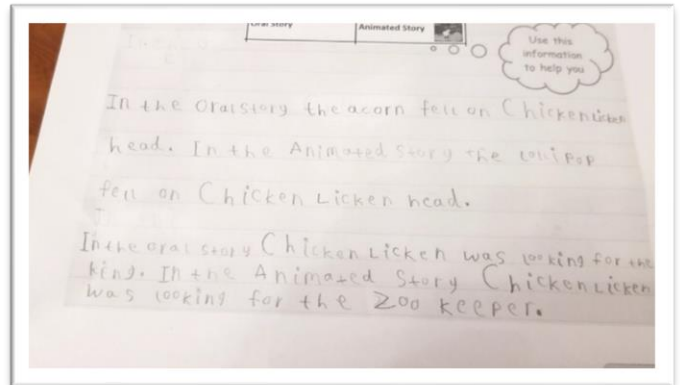 Oral Story Animated Story
Use this
information
to help you
In the Oral story the acorn fell on Chicken Licken
head. In the Animated Story the Lolli pop
fell on Chicken Licken head.
In the oral story Chicken Licken was looking for the
king. In the Animated Story Chicken Licken
was looking for the Zoo keeper.